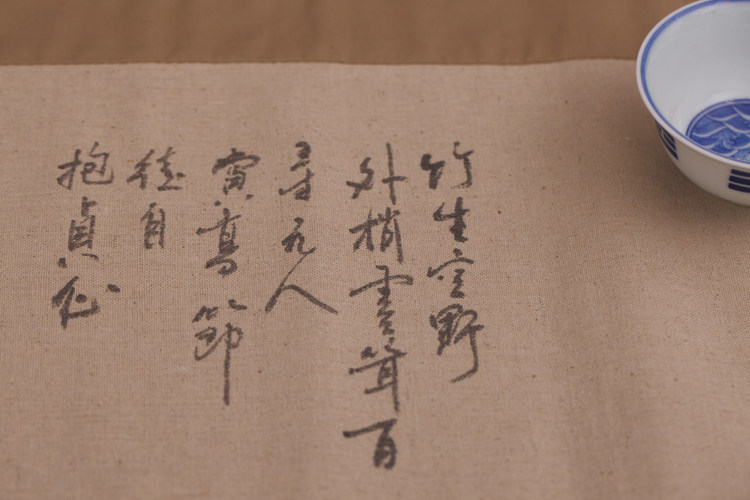 竹生空野
外梢雲聳百
尋无人
賞高節
徒自
抱貞心